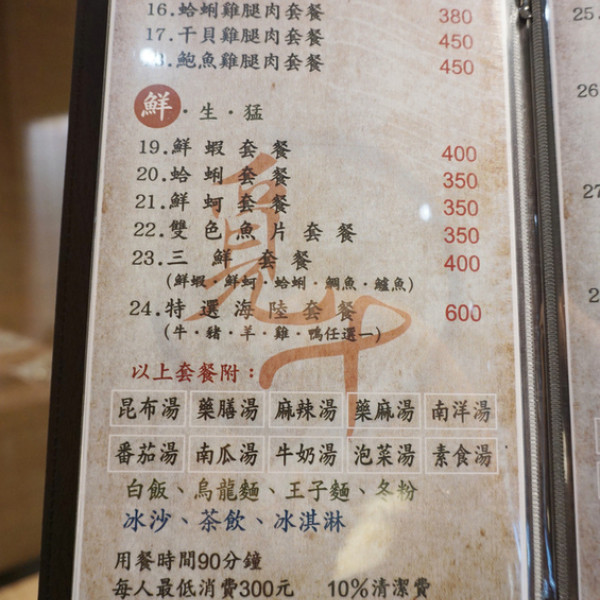 16.蛤蜊雞腿肉套餐 380
17.干貝雞腿肉套餐 450
18.鮑魚雞腿肉套餐 450
鮮・生・猛
19.鮮蝦套餐 400
20.蛤蜊套餐 350
21.鮮蚵套餐 350
22.雙色魚片套餐 350
23.三鮮套餐 400
(鮮蝦・鮮蚵・蛤蜊・鯛魚・鱸魚)
24.特選海陸套餐 600
(牛・豬・羊・雞・鴨任選一)
以上套餐附：
昆布湯 藥膳湯 麻辣湯 藥麻湯 南洋湯
番茄湯 南瓜湯 牛奶湯 泡菜湯 素食湯
白飯、烏龍麵、王子麵、冬粉
冰沙、茶飲、冰淇淋
用餐時間90分鐘
每人最低消費300元 10%清潔費
25.
26
27